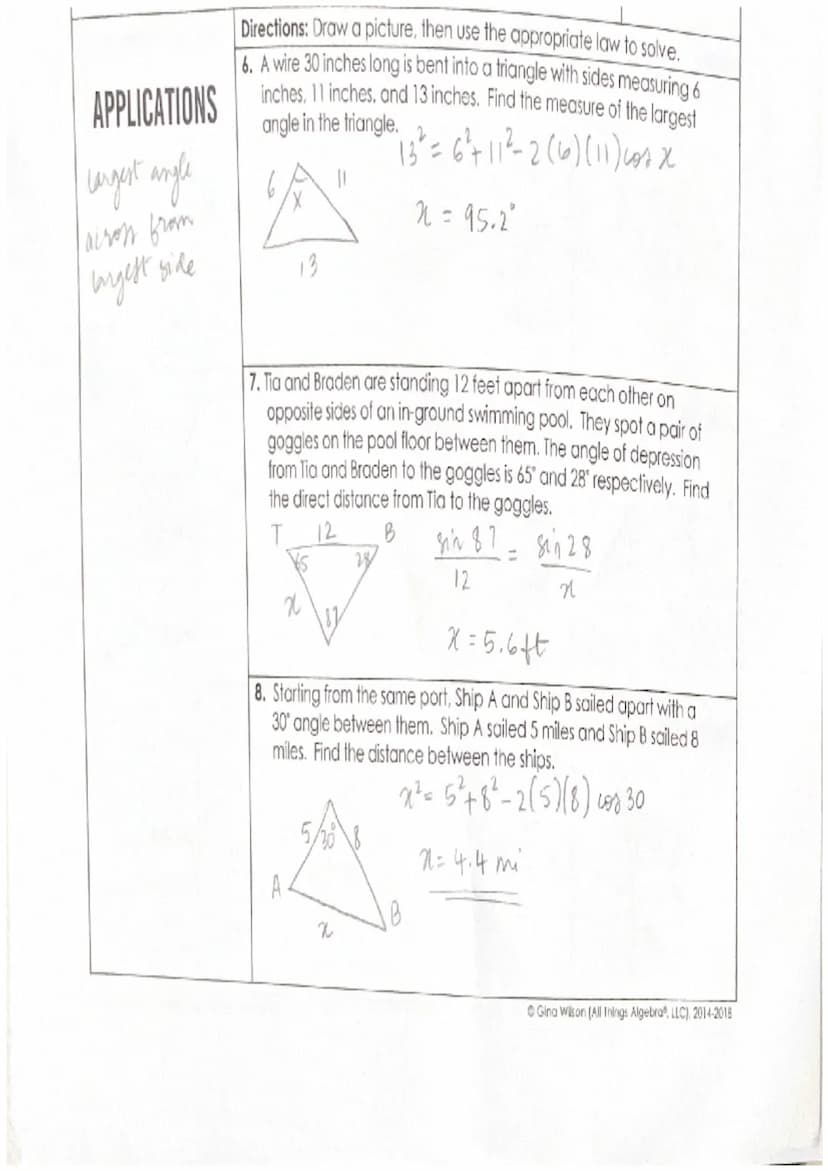 Directions: Draw a picture, then use the appropriate law to solve.
APPLICATIONS
largest angle
across from
largest side
6. A wire 30 inches long is bent into a triangle with sides measuring 6
inches, 11 inches, and 13 inches. Find the measure of the largest
angle in the triangle.
13² = 6² + 11² - 2(6)(11) cos x
6 11
x
x = 95.2°
13
7. Tia and Braden are standing 12 feet apart from each other on
opposite sides of an in-ground swimming pool. They spot a pair of
goggles on the pool floor between them. The angle of depression
from Tia and Braden to the goggles is 65° and 28° respectively. Find
the direct distance from Tia to the goggles.
T 12 B
65 28
x 87
sin 87 / 12 = sin 28 / x
x = 5.6 ft
8. Starting from the same port, Ship A and Ship B sailed apart with a
30° angle between them. Ship A sailed 5 miles and Ship B sailed 8
miles. Find the distance between the ships.
x² = 5² + 8² - 2(5)(8) cos 30
5 30° 8
x = 4.4 mi
A
B
x
© Gina Wilson (All Things Algebra®, LLC), 2014-2018